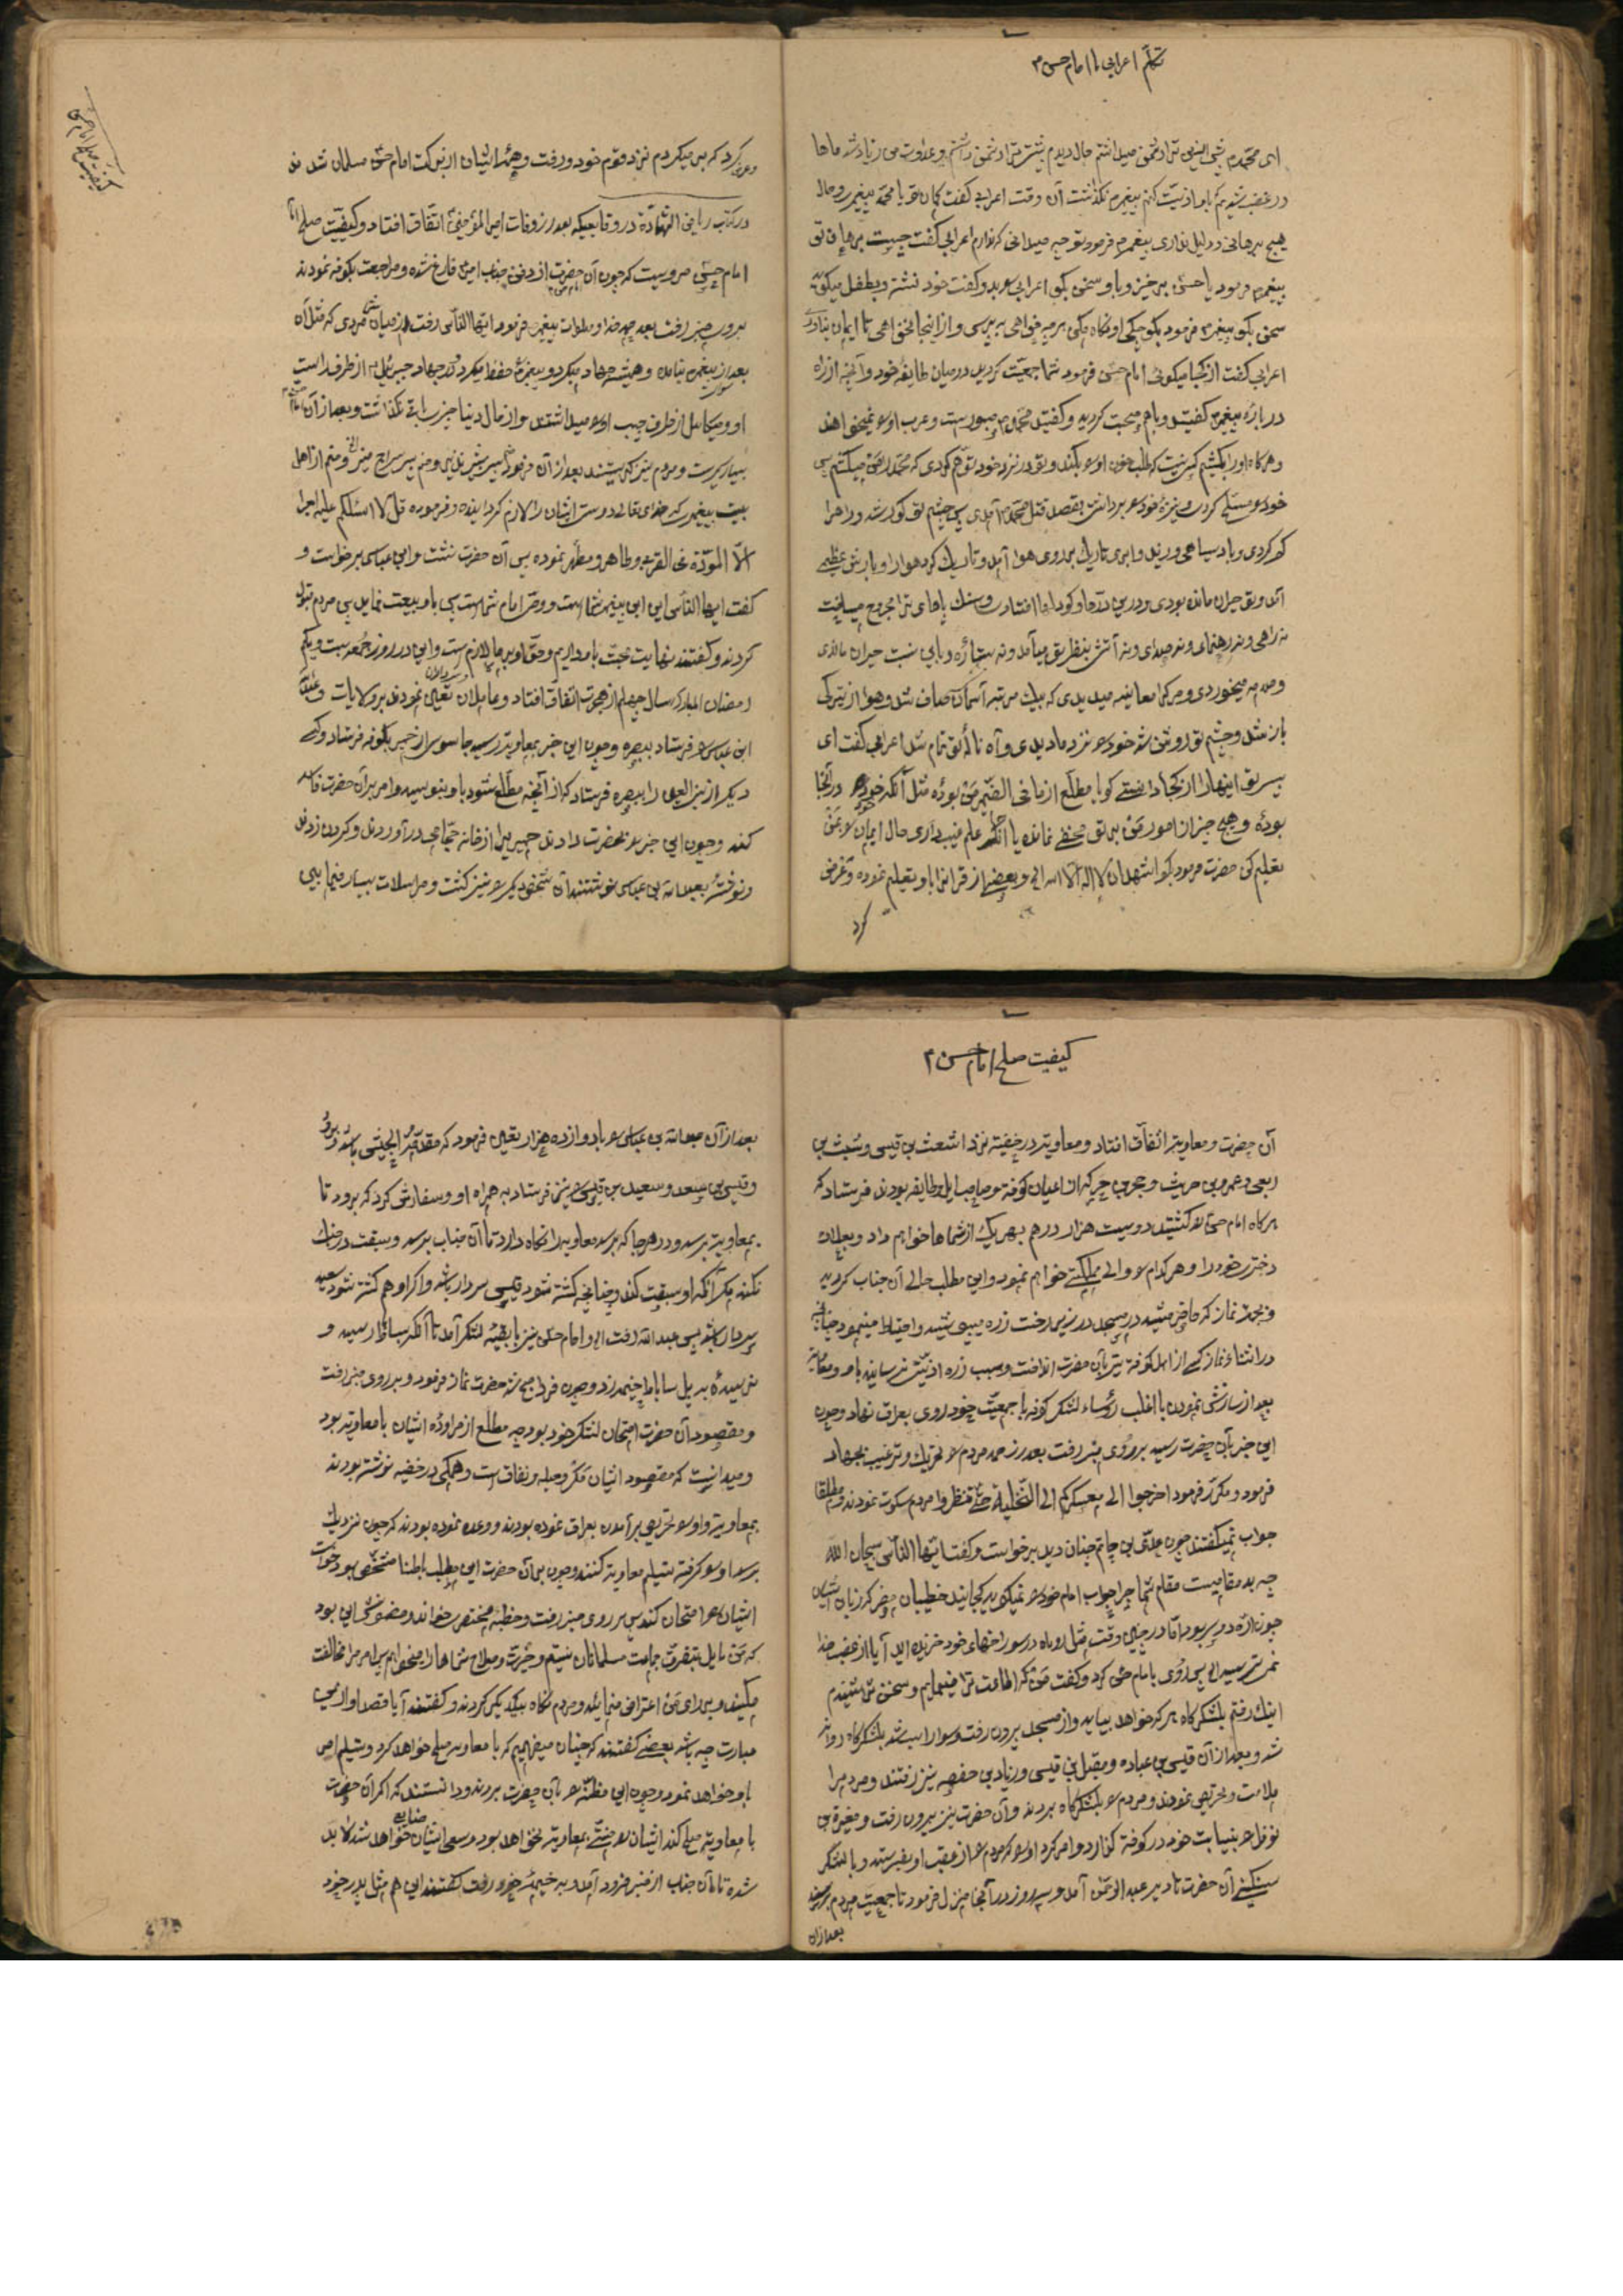 تکلّم اعرابی با امام حسن ع
ای محمّد پیش ازین ترا دشمن میدانستم حال دیدم بیشتر ترا دشمن داشتم و عداوت من زیاد شد ماها
در غضب شدیم باو اذیّت کنیم پیغمبر نگذاشت آن وقت اعرابی گفت یا محمّد پیغمبر و حال
هیچ برهانی و دلیل نداری پیغمبر فرمود تو چه میدانی که ندارم اعرابی گفت چیست برهان تو
پیغمبر فرمود یا حسن برخیز و باو سخن بگو اعرابی و گفت خود نشسته و بطفل میگوید
سخن بگو پیغمبر فرمود بکوچکی او نگاه مکن هر چه خواهی بپرس و از اینجا نخواهی تا ایمان نیاوری
اعرابی گفت از کجا میگوئی امام حسن فرمود شما جمعیّت کردید در میان طایفه خود و آنچه از راه
در باره پیغمبر گفتید و باهم صحبت کردید و گفتید محمّد صبور است و عرب او را نمیخواهند
و هرگاه او را بکشیم کسی نیست که طلب خون او را بکند و تو در نزد خود توهّم کردی که محمّد را من میکشم پس
خود را مسلّح کردی و نیزه خود را برداشتی بقصد قتل محمّد آمدی پس چشم تو کور شد و راه را
گم کردی و باد سیاهی وزید و ابری تاریک بر روی هوا آمد و تاریک کرد هوا را و بارش عظیم
آمد و تو حیران مانده بودی و در بین درّه‌ها و گودالها افتادی و سنگ پاهای ترا مجروح میساخت
نه راهی و نه رهنمای و نه صدای و نه آتش بنظر تو میآمد و نه ستاره و باین نسبت حیران ماندی
و صدمه میخوردی و مرگ را معاینه میدیدی که بیک مرتبه آسمان صاف شد و هوا از تیرگی
باز شد و چشم تو روشن شد خود را نزد ما دیدی و آه ناله تو تمام شد اعرابی گفت ای
پسر تو اینها را از کجا دانستی گویا مطّلع از ما فی الضّمیر من بوده مثل آنکه خود در آنجا
بوده و هیچ چیز از امور من بر تو مخفی نمانده یا آنکه علم غیب داری حال ایمان را بمن
تعلیم کن حضرت فرمود بگو اشهد ان لا اله الا الله الخ و بعضی از قرآن را باو تعلیم نموده و عرض
کرد
و عرض کرد که من میگردم نزد قوم خود و رفت و همه ایشان از برکت امام حسن مسلمان شدند
در کتاب ریاض الشّهادة در وقایعیکه بعد از وفات امیر المؤمنین اتّفاق افتاد و کیفیّت صلح
امام حسن مرویست که چون آن حضرت از دفن جناب امیر فارغ شده و مراجعت بکوفه نمودند
بر روی منبر رفت بعد حمد خدا و صلوات پیغمبر فرمود ایّها النّاس رفت از میان شما مردی که مثل آن
بعد از پیغمبر نیامده و همیشه جهاد میکرد و پیغمبر را حفظ میکرد در جهاد جبرئیل از طرف راست
او و میکائیل از طرف چپ او را میداشتند و از مال دنیا چیزی باقی نگذاشت و بعد از آن
بسیار گریست و مردم نیز گریستند بعد از آن فرمود منم پسر بشیر نذیر و منم پسر سراج منیر و منم از اهل
بیت پیغمبر که خدای تعالی دوستی ایشان را لازم گردانیده و فرموده قل لا اسئلکم علیه اجرا
الّا المودّة فی القربی و طاهر و مطهّر نموده پس آن حضرت نشست و ابن عباس برخواست و
گفت ایها النّاس این ابن پیغمبر شماست و وصیّ امام شماست پس باو بیعت نمائید پس مردم قبول
کردند و گفتند نهایت محبّت باو داریم و حقّ او بر ما لازم است و این در روز جمعه بیست و یکم
رمضان المبارک سال چهلم از هجرت اتّفاق افتاد و عاملان تعیین نمودند بر ولایات و عبد الله
ابن عباس را فرستاد ببصره و چون این خبر بمعاویه رسید جاسوس از حمیر بکوفه فرستاد و کسی
دیگر از بنی القین را ببصره فرستاد که از آنچه مطّلع شود باو بنویسد و امر بر آن حضرت فاسد
کند و چون این خبر بحضرت دادند حمیری را از خانه حجّامی در آوردند و گردن زدند
و نوشته بعبد الله بن عباس نوشتند آن شخص دیگر را نیز کشت و مراسلات بسیار فیما بین
کیفیت صلح امام حسن ع
آن حضرت و معاویه اتّفاق افتاد و معاویه در خفیه نزد اشعث بن قیس و شبث بن
ربعی و عمرو بن حریث و حجر بن حجر که از اعیان کوفه و صاحب ایل و طایفه بودند فرستاد که
هرگاه امام حسن را کشتید دویست هزار درهم بهر یک از شماها خواهم داد و بعلاوه
دختر خود را و هر کدام را والی مملکتی خواهم نمود و این مطلب حالی آن جناب گردید
و بجهة نماز که حاضر میشد در مسجد در زیر رخت زره میپوشید و احتیاط مینمود چنانچه
در اثناء نماز کسی از اهل کوفه تیر بآن حضرت انداخت و بسبب زره اذیّت نرسانید باو و معاویه
بعد از سازش نمودن با اغلب رؤساء لشکر کوفه با جمعیّت خود روی بعراق نهاد و چون
این خبر بآن حضرت رسید بر روی منبر رفت بعد از حمد مردم را تحریک و ترغیب بجهاد
فرمود و مکرّر فرمود اخرجوا الی معسکرکم الی النّخیلة حتّی تنظروا مردم سکوت نمودند و مطلقا
جواب نمیگفتند چون عدیّ بن حاتم چنان دید برخواست و گفت ایّها النّاس سبحان الله
چه بد مقامیست مقام شما چرا جواب امام خود را نمیگوئید کجایند خطیبان مضر که زبان ایشان
چون ارّه دو سر بود امّا در چنین وقت مثل روباه در سوراخهای خود خزیده‌اید آیا از غضب خدا
نمیترسید پس روی بامام حسن کرد و گفت من که اطاعت ترا مینمایم و سخن تو شنیدم
اینک رفتم بلشکرگاه هر که خواهد بیاید و از مسجد بیرون رفت و سوار اسب شد بلشکرگاه روانه
شد و بعد از آن قیس بن عباده و معقل ابن قیس و زیاد بن حفصه نیز رفتند و مردم را
ملامت و تحریص نمودند و مردم را بلشکرگاه بردند و آن حضرت نیز بیرون رفت و مغیرة بن
نوفل را بنیابت خود در کوفه گذارد و امر کرد او را که مردم را از عقب او بفرستد و با لشکر
سنگین آن حضرت تا دیر عبد الرحمن آمد و سه روز در آنجا منزل فرمود تا جمعیّت مردم برسند
بعد از آن
بعد از آن عبد الله بن عباس را با دوازده هزار تعیین فرمود که مقدّمة الجیش باشد و برود
و قیس بن سعد و سعید بن قیس را نیز فرستاد به همراه او و سفارش کرد که برود تا
بمعاویه برسد و در هر جا که برسد معاویه را نگاه دارد تا آن جناب برسد و سبقت در جنگ
نکند مگر آنکه او سبقت کند و چنانچه کشته شود قیس سردار باشد و اگر او هم کشته شود سعید
سردار باشد پس عبد الله رفت و امام حسن نیز با بقیّه لشکر آمد تا آنکه بساباط رسید و
نرسیده به پل ساباط خیمه زد و چون فردا صبح شد حضرت نماز فرمود و بر روی منبر رفت
و مقصود آن حضرت امتحان لشکر خود بود چه مطّلع از مراوده ایشان با معاویه بود
و میدانست که مقصود ایشان مکر و حیله و نفاق است و همگی در خفیه نوشته بودند
بمعاویه و او را تحریص بر آمدن بعراق نموده بودند و وعده نموده بودند که چون نزدیک
برسد او را گرفته تسلیم معاویه کنند و چون بر آن حضرت این مطلب باطنا مشخّص بود خواست
ایشان را امتحان کند پس بر روی منبر رفت و خطبه مختصری خواند و مضمونش این بود
که من مایل بتفرقه جماعت مسلمانان نیستم و خیریّت و صلاح شماها را میخواهم پس امر مرا مخالفت
مکنید و بر رای من اعتراض منمائید و مردم نگاه بیکدیگر کردند و گفتند آیا قصد او از این
عبارت چه باشد بعضی گفتند که چنان میفهمیم که با معاویه صلح خواهد کرد و تسلیم امر
باو خواهد نمود و چون این مظنّه را بآن حضرت بردند و دانستند که اگر آن حضرت
با معاویه صلح کند ایشان را منّتی بمعاویه نخواهد بود و سعی ایشان ضایع خواهد شد لابد
شده تا آن جناب از منبر فرود آمد و به خیمه خود رفت گفتند این هم مثل پدر خود